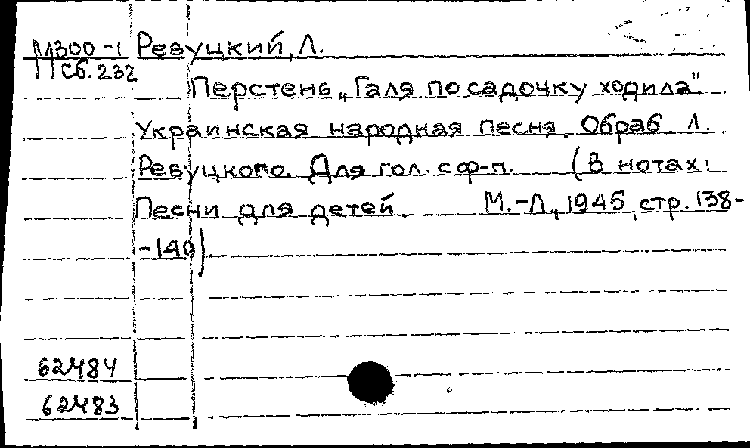 М300-1 Ревуцкий, Л.
Сб. 232
Перстень „Галя по садочку ходила"
Украинская народная песня. Обраб. Л.
Ревуцкого. Для гол. с ф-п. (В нотах:
Песни для детей. М.-Л., 1945, стр. 138-
-140)
62484
62483